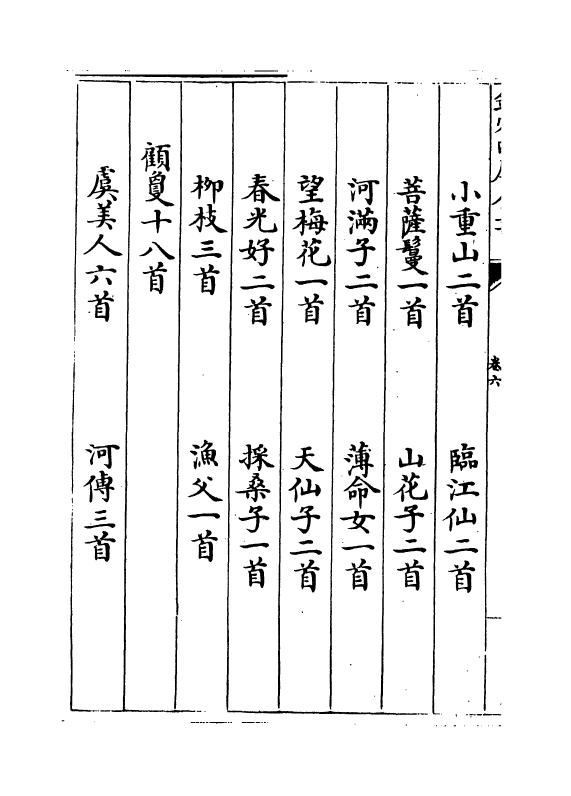 小重山二首　臨江仙二首
菩薩鬘一首　山花子二首
河滿子二首　薄命女一首
望梅花一首　天仙子二首
春光好二首　採桑子一首
柳枝三首　漁父一首
顧敻十八首
虞美人六首　河傳三首
卷六